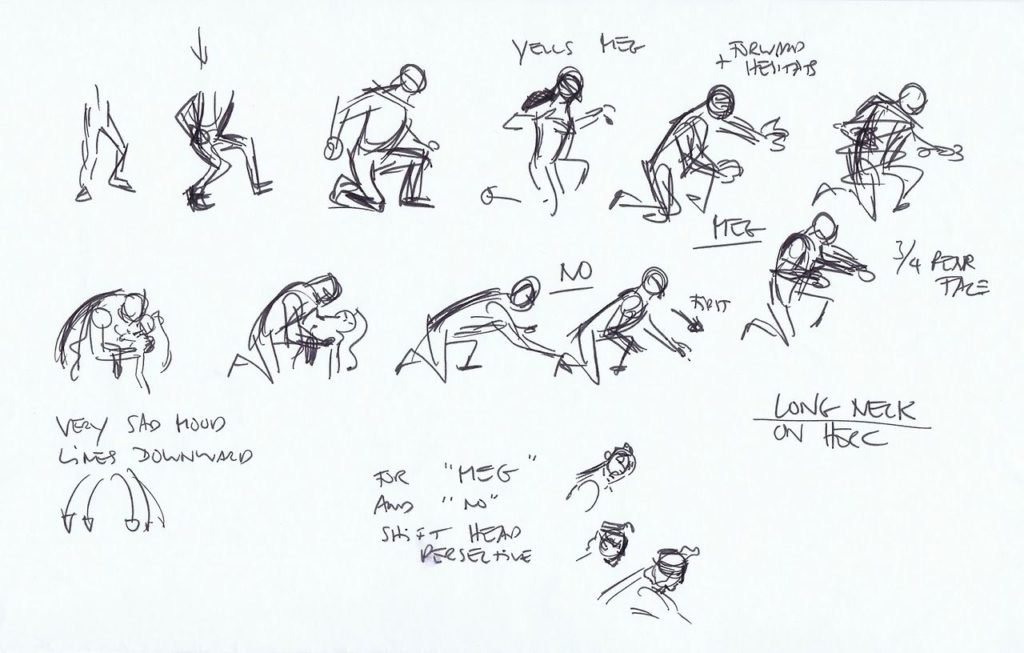 YELLS MEG
FORWARD
+ HESITATS
MEG
3/4 REAR
FACE
NO
FIRST
VERY SAD MOOD
LINES DOWNWARD
LONG NECK
ON HERC
FOR "MEG"
AND "NO"
SHIFT HEAD
PERSECTIVE